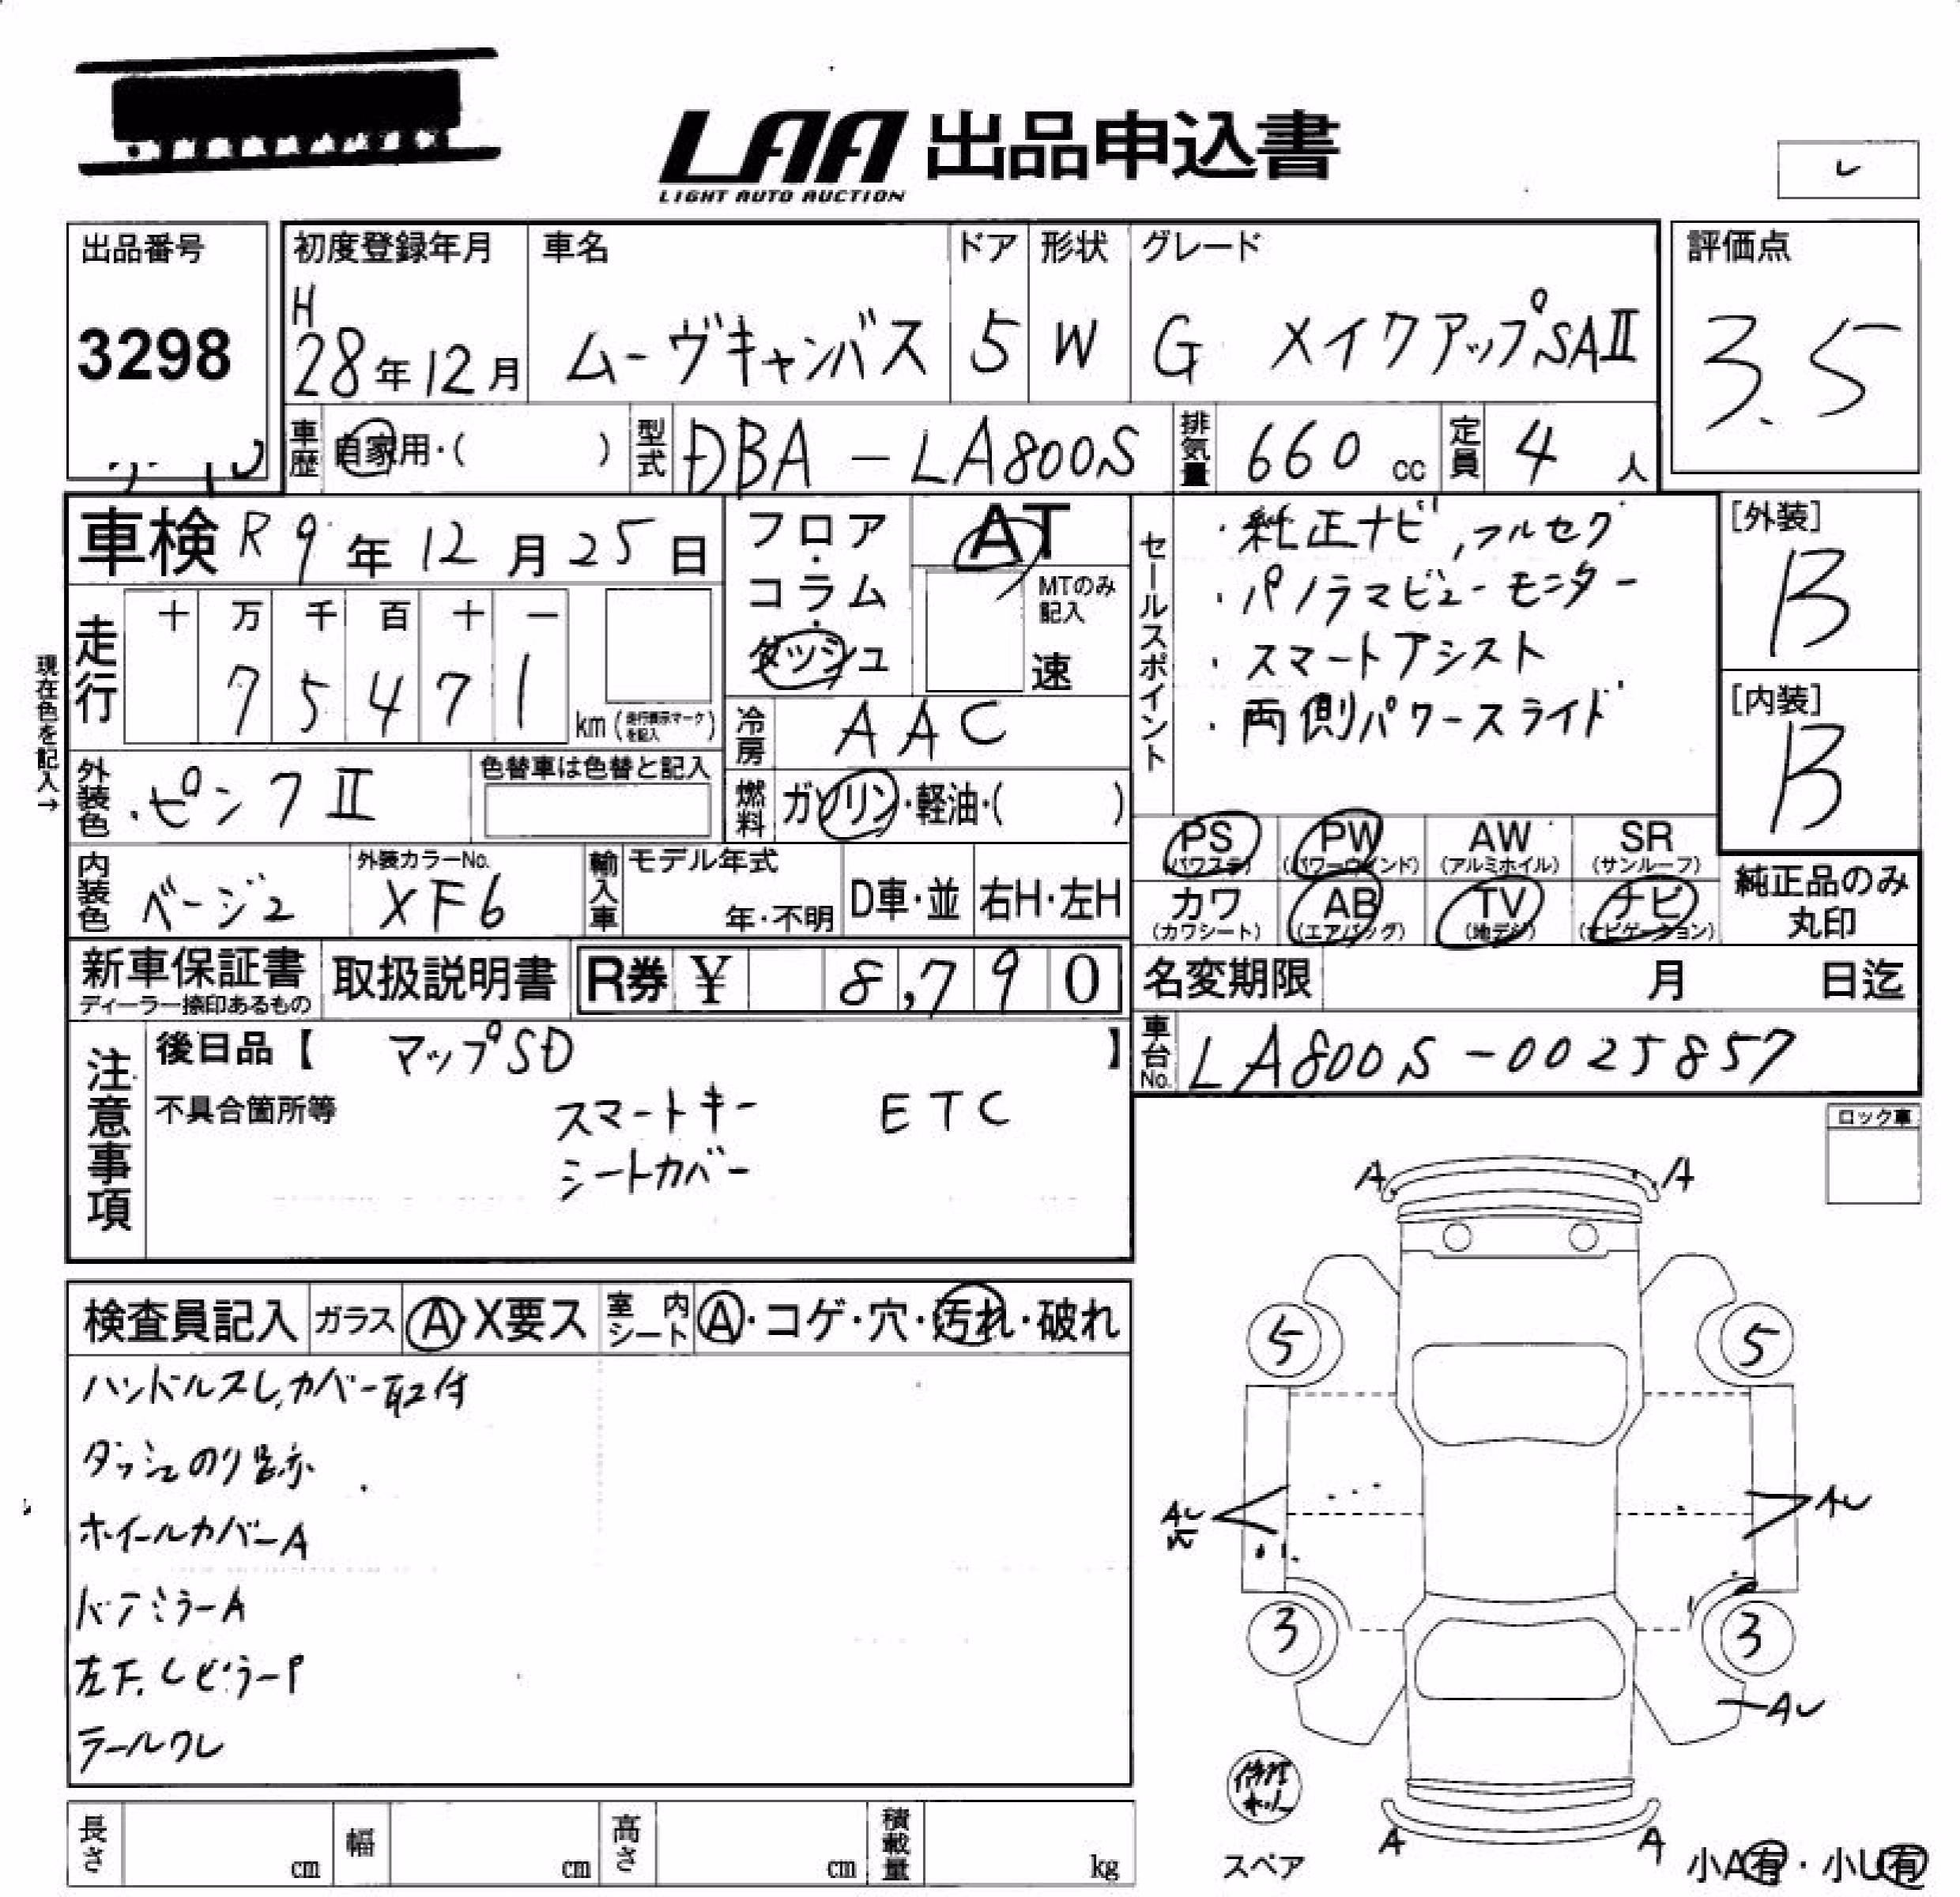 LAA 出品申込書
LIGHT AUTO AUCTION
レ
出品番号
3298
初度登録年月
H
28年12月
車名
ムーヴキャンバス
ドア
5
形状
W
グレード
G メイクアップSAⅡ
評価点
3.5
車歴 自家用・( )
型式 DBA-LA800S
排気量 660 cc
定員 4 人
車検 R 9年 12月 25日
走行
十 万 千 百 十 一
7 5 4 7 1
km (走行表示マークを記入)
現在色を記入→
フロア・コラム・ダッシュ
AT
MTのみ記入
速
冷房 AAC
燃料 ガソリン・軽油・( )
セールスポイント
・純正ナビ,フルセグ
・パノラマビューモニター
・スマートアシスト
・両側パワースライド
[外装]
B
[内装]
B
外装色 ピンクⅡ
色替車は色替と記入
内装色 ベージュ
外装カラーNo.
XF6
輸入車
モデル年式
年・不明
D車・並
右H・左H
PS (パワステ)
PW (パワーウインド)
AW (アルミホイル)
SR (サンルーフ)
カワ (カワシート)
AB (エアバッグ)
TV (地デジ)
ナビ (ナビゲーション)
純正品のみ
丸印
新車保証書
ディーラー捺印あるもの
取扱説明書
R券 ¥ 8,790
名変期限 月 日迄
車台No. LA800S-0025857
注意事項
後日品【 マップSD 】
不具合箇所等
スマートキー ETC
シートカバー
ロック車
検査員記入
ガラス A・X要ス
室内シート A・コゲ・穴・汚れ・破れ
ハンドルスレ,カバー取付
ダッシュのり跡
ホイールカバーA
ドアミラーA
左下,CピラーP
テールワレ
A A
5 5
AU
AU
3 3
AU
A A
スペア
小A有・小U有
長さ cm
幅 cm
高さ cm
積載量 kg